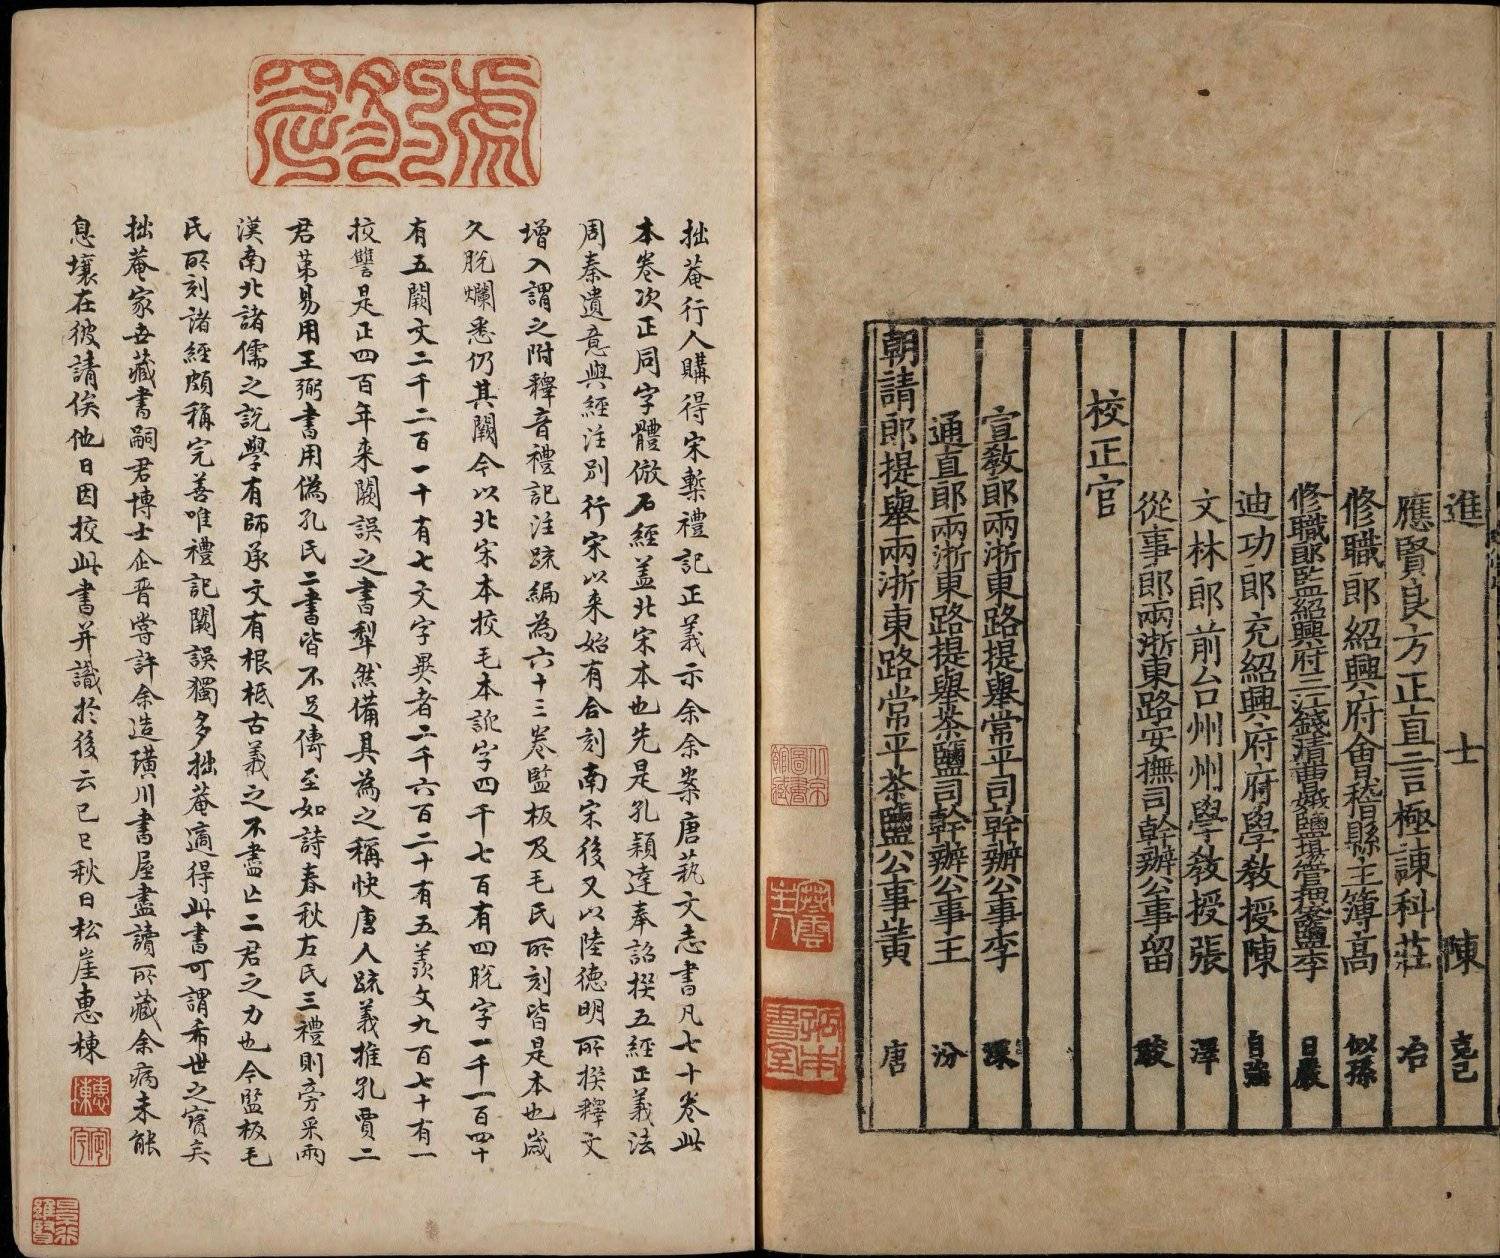 進士陳克己
應賢良方正直言極諫科莊冶
修職郎紹興府會稽縣主簿高似孫
修職郎監紹興府三江錢清曹娥鹽場管押袋鹽李日嚴
迪功郎充紹興府府學教授陳自強
文林郎前台州州學教授張澤
從事郎兩浙東路安撫司幹辦公事留駿
校正官
宣教郎兩浙東路提舉常平司幹辦公事李深
通直郎兩浙東路提舉茶鹽司幹辦公事王汾
朝請郎提舉兩浙東路常平茶鹽公事黃唐
拙菴行人購得宋槧禮記正義示余余案唐藝文志書凡七十卷此
本卷次正同字體倣石經蓋北宋本也先是孔穎達奉詔撰五經正義法
周秦遺意與經注別行宋以來始有合刻南宋後又以陸德明所撰釋文
增入謂之附釋音禮記注疏編為六十三卷監板及毛氏所刻皆是本也歲
久脫爛悉仍其闕今以北宋本校毛本訛字四千七百有四脫字一千一百四十
有五闕文二千二百一十有七文字異者二千六百二十有五羨文九百七十有一
挍讐是正四百年來闕誤之書犁然備具為之稱快唐人疏義推孔賈二
君苐易用王弼書用偽孔氏二書皆不足傳至如詩春秋左氏三禮則旁采兩
漢南北諸儒之說學有師承文有根柢古義之不盡亡二君之力也今監板毛
氏所刻諸經頗稱完善唯禮記闕誤獨多拙菴適得此書可謂希世之寶矣
拙菴家世藏書嗣君博士企晋嘗許余造璜川書屋盡讀所藏余病未能
息壤在彼請俟他日因挍此書并識於後云己巳秋日松崖惠棟
惠棟